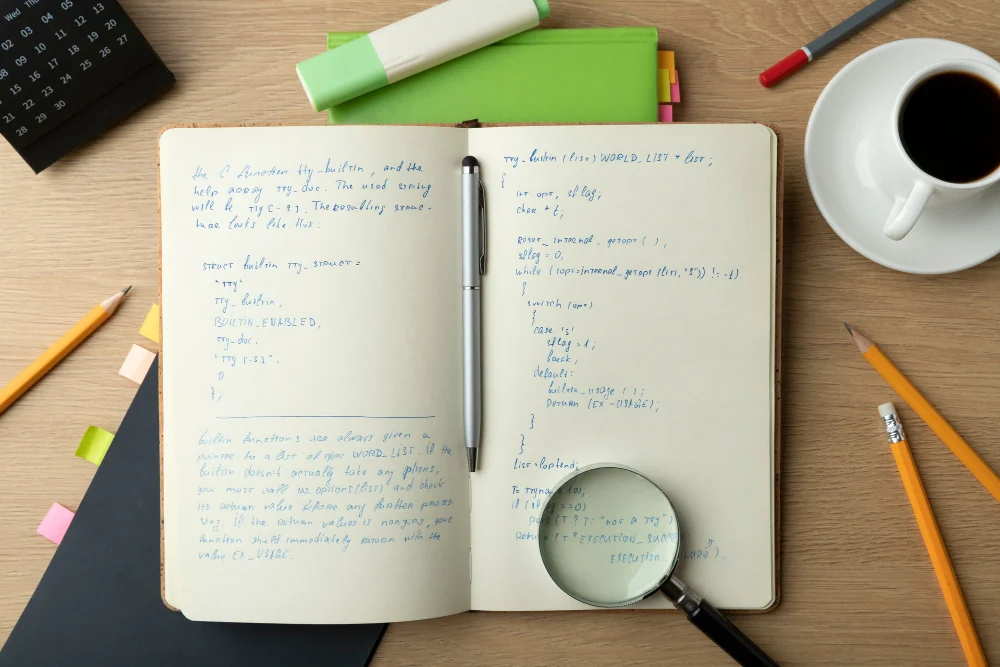 Wed Thu
04 05
02 03 04 05 06
09 10 11 12 13
08 09 10 11 12 13
15 16 17 18 19 20
14 15 16 17 18 19 20
21 22 23 24 25 26 27
28 29 30
the C function tty_builtin, and the
help array tty_doc. The used string
will be tty [-s]. The resulting struc-
ture looks like this:
struct builtin tty_struct =
"tty"
tty_builtin,
BUILTIN_ENABLED,
tty_doc.
"tty [-s]".
0
};
builtin functions are always given a
pointer to a list of type WORD_LIST. If the
builtin doesn't actually take any options,
you must call no_options(list) and check
its return value before any further proces
sing. If the return values is nonzero, your
function should immediately return with the
value EX_USAGE.
tty_builtin (list) WORLD_LIST * list;
{
int opt, sflag;
char * t;
reset_internal_getopt ( );
sflag = 0;
while ((opt=internal_getopt (list, "s")) != -1)
{
switch (opt)
{
case 's'
sflag = 1;
break;
default:
builtin_usage ( );
return (EX_USAGE);
}
}
list = loptend;
if (sflag == 0)
puts (t ? t : "not a tty")
return (t ? EXECUTION_
EXECUTION_